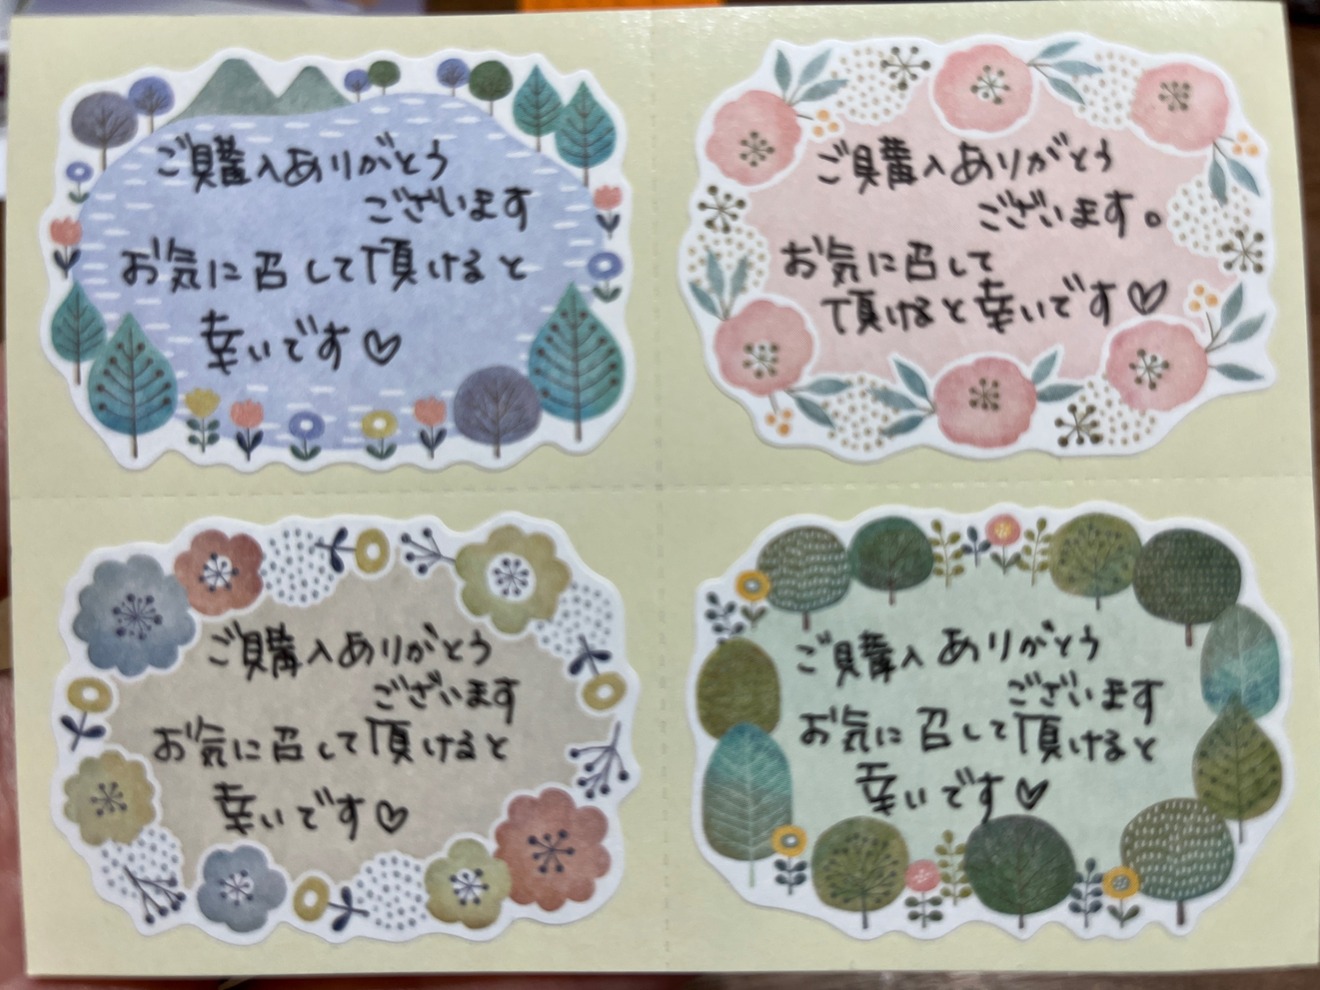 ご購入ありがとう
ございます
お気に召して頂けると
幸いです♡
ご購入ありがとう
ございます。
お気に召して
頂けると幸いです♡
ご購入ありがとう
ございます
お気に召して頂けると
幸いです♡
ご購入ありがとう
ございます
お気に召して頂けると
幸いです♡